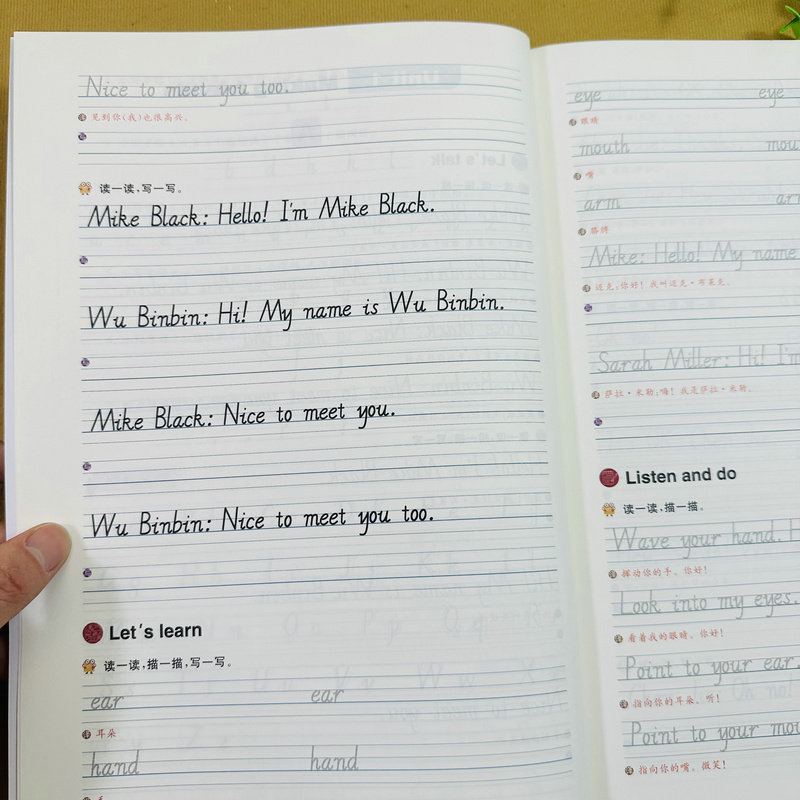 Nice to meet you too.
见到你(我)也很高兴。
读一读,写一写。
Mike Black: Hello! I'm Mike Black.
Wu Binbin: Hi! My name is Wu Binbin.
Mike Black: Nice to meet you.
Wu Binbin: Nice to meet you too.
Let's learn
读一读,描一描,写一写。
ear ear
耳朵
hand hand
eye eye
眼睛
mouth mou
嘴
arm ar
胳膊
Mike: Hello! My name
迈克:你好!我叫迈克·布莱克。
Sarah Miller: Hi! I'm
萨拉·米勒:嗨!我是萨拉·米勒。
Listen and do
读一读,描一描。
Wave your hand. H
挥动你的手。你好!
Look into my eyes.
看着我的眼睛。你好!
Point to your ear.
指向你的耳朵。听!
Point to your mou
指向你的嘴。微笑!